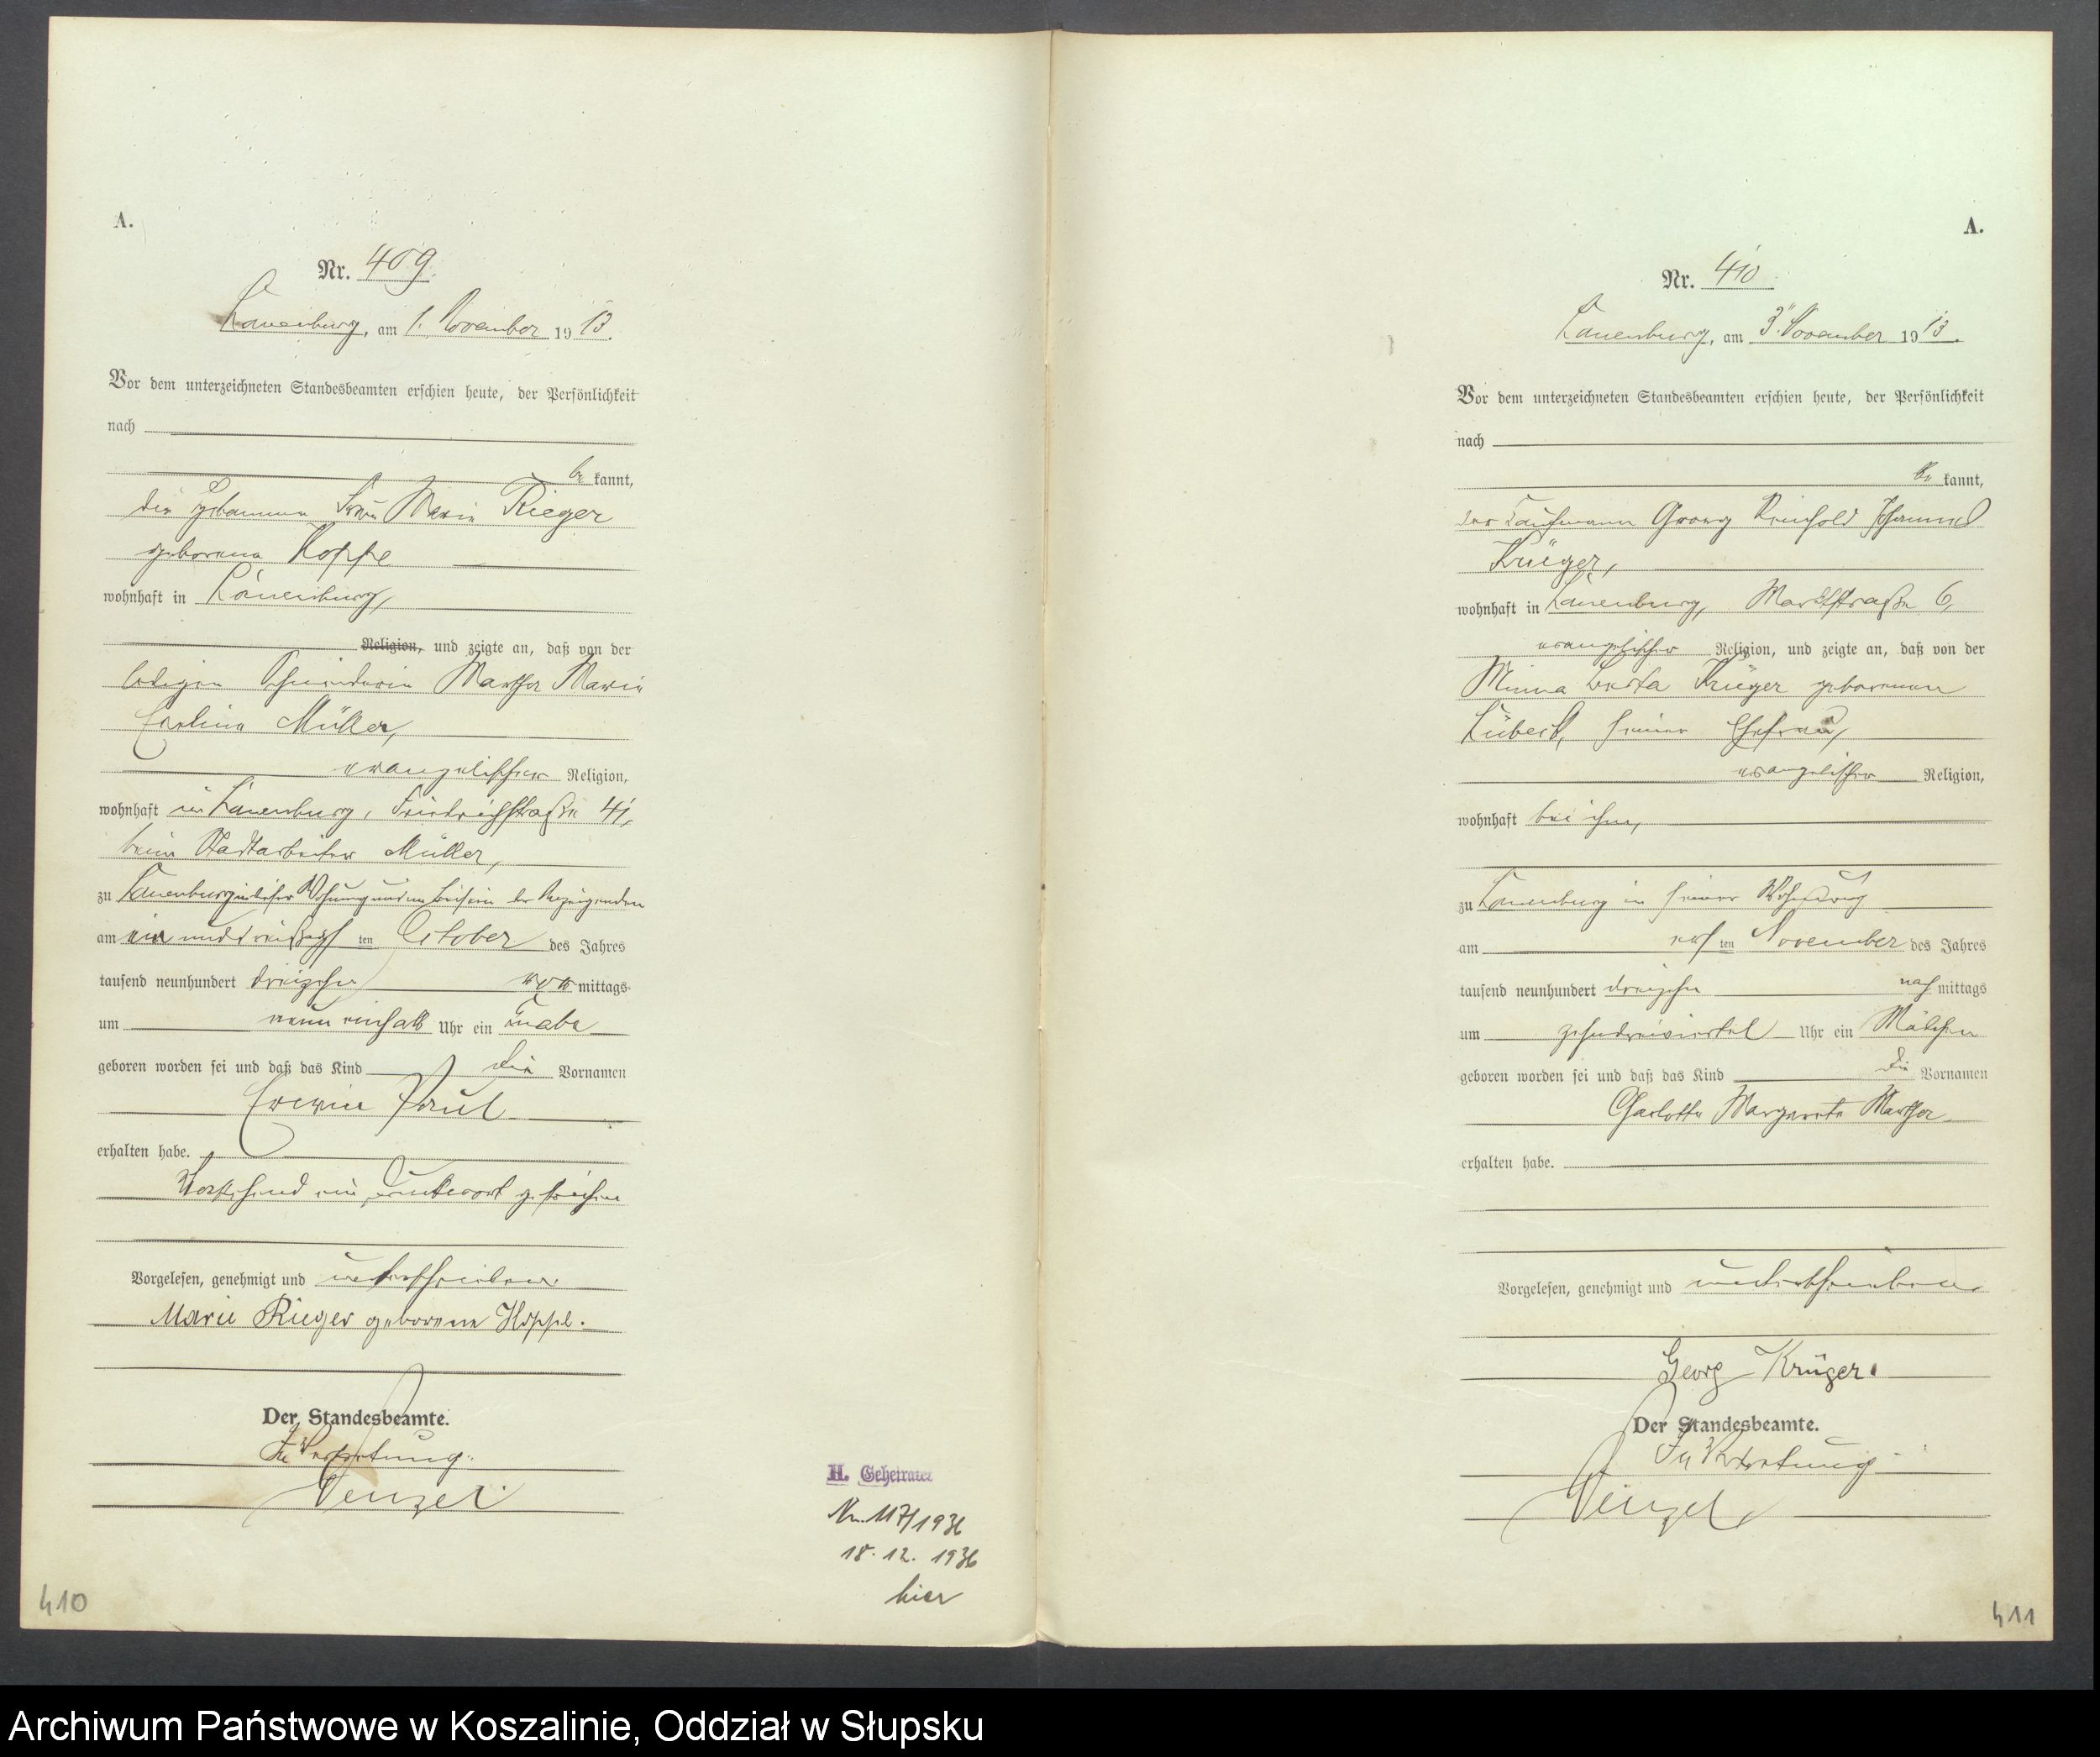 A.
Nr. 409
Lauenburg, am 1. November 1913.
Vor dem unterzeichneten Standesbeamten erschien heute, der Persönlichkeit
nach
be kannt,
die Hebamme Frau Marie Rieger
geborene Koppe
wohnhaft in Lauenburg,
Religion, und zeigte an, daß von der
ledigen Schneiderin Martha Marie
Karoline Müller,
evangelischer Religion,
wohnhaft in Lauenburg, Friedrichstraße 41,
beim Stadtarbeiter Müller,
zu Lauenburg in dieser Wohnung und im Beisein der Anzeigenden
am ein und dreißigsten October des Jahres
tausend neunhundert dreizehn vor mittags
um neun einhalb Uhr ein Knabe
geboren worden sei und daß das Kind die Vornamen
Erwin Paul
erhalten habe.
Vorstehend ein Druckwort gestrichen
Vorgelesen, genehmigt und unterschrieben
Marie Rieger geborene Koppe.
Der Standesbeamte.
In Vertretung.
Wenzel.
H. Geheiratet
Nr. 117/1936
18. 12. 1936
hier
410
A.
Nr. 410
Lauenburg, am 3. November 1913.
Vor dem unterzeichneten Standesbeamten erschien heute, der Persönlichkeit
nach
be kannt,
der Kaufmann Georg Reinhold
Krüger,
wohnhaft in Lauenburg, Marktstraße 6,
evangelischer Religion, und zeigte an, daß von der
Minna Berta Krüger geborenen
Lübeck, seiner Ehefrau,
evangelischer Religion,
wohnhaft bei ihm,
zu Lauenburg in seiner Wohnung
am ersten November des Jahres
tausend neunhundert dreizehn nach mittags
um zehndreiviertel Uhr ein Mädchen
geboren worden sei und daß das Kind die Vornamen
Charlotte Margarete Martha
erhalten habe.
Vorgelesen, genehmigt und unterschrieben
Georg Krüger.
Der Standesbeamte.
In Vertretung
Wenzel
411
Archiwum Państwowe w Koszalinie, Oddział w Słupsku